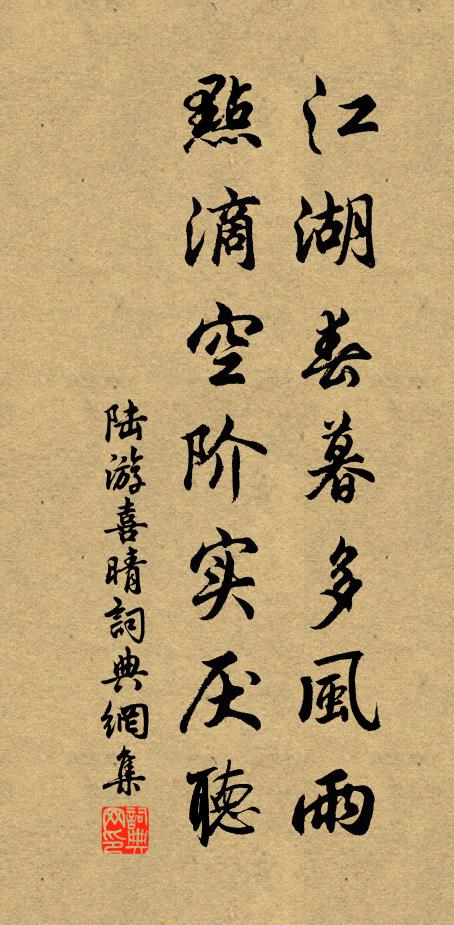 江湖春暮多風雨
點滴空阶实厌聴
陆游喜晴詞典網集
詞典网印